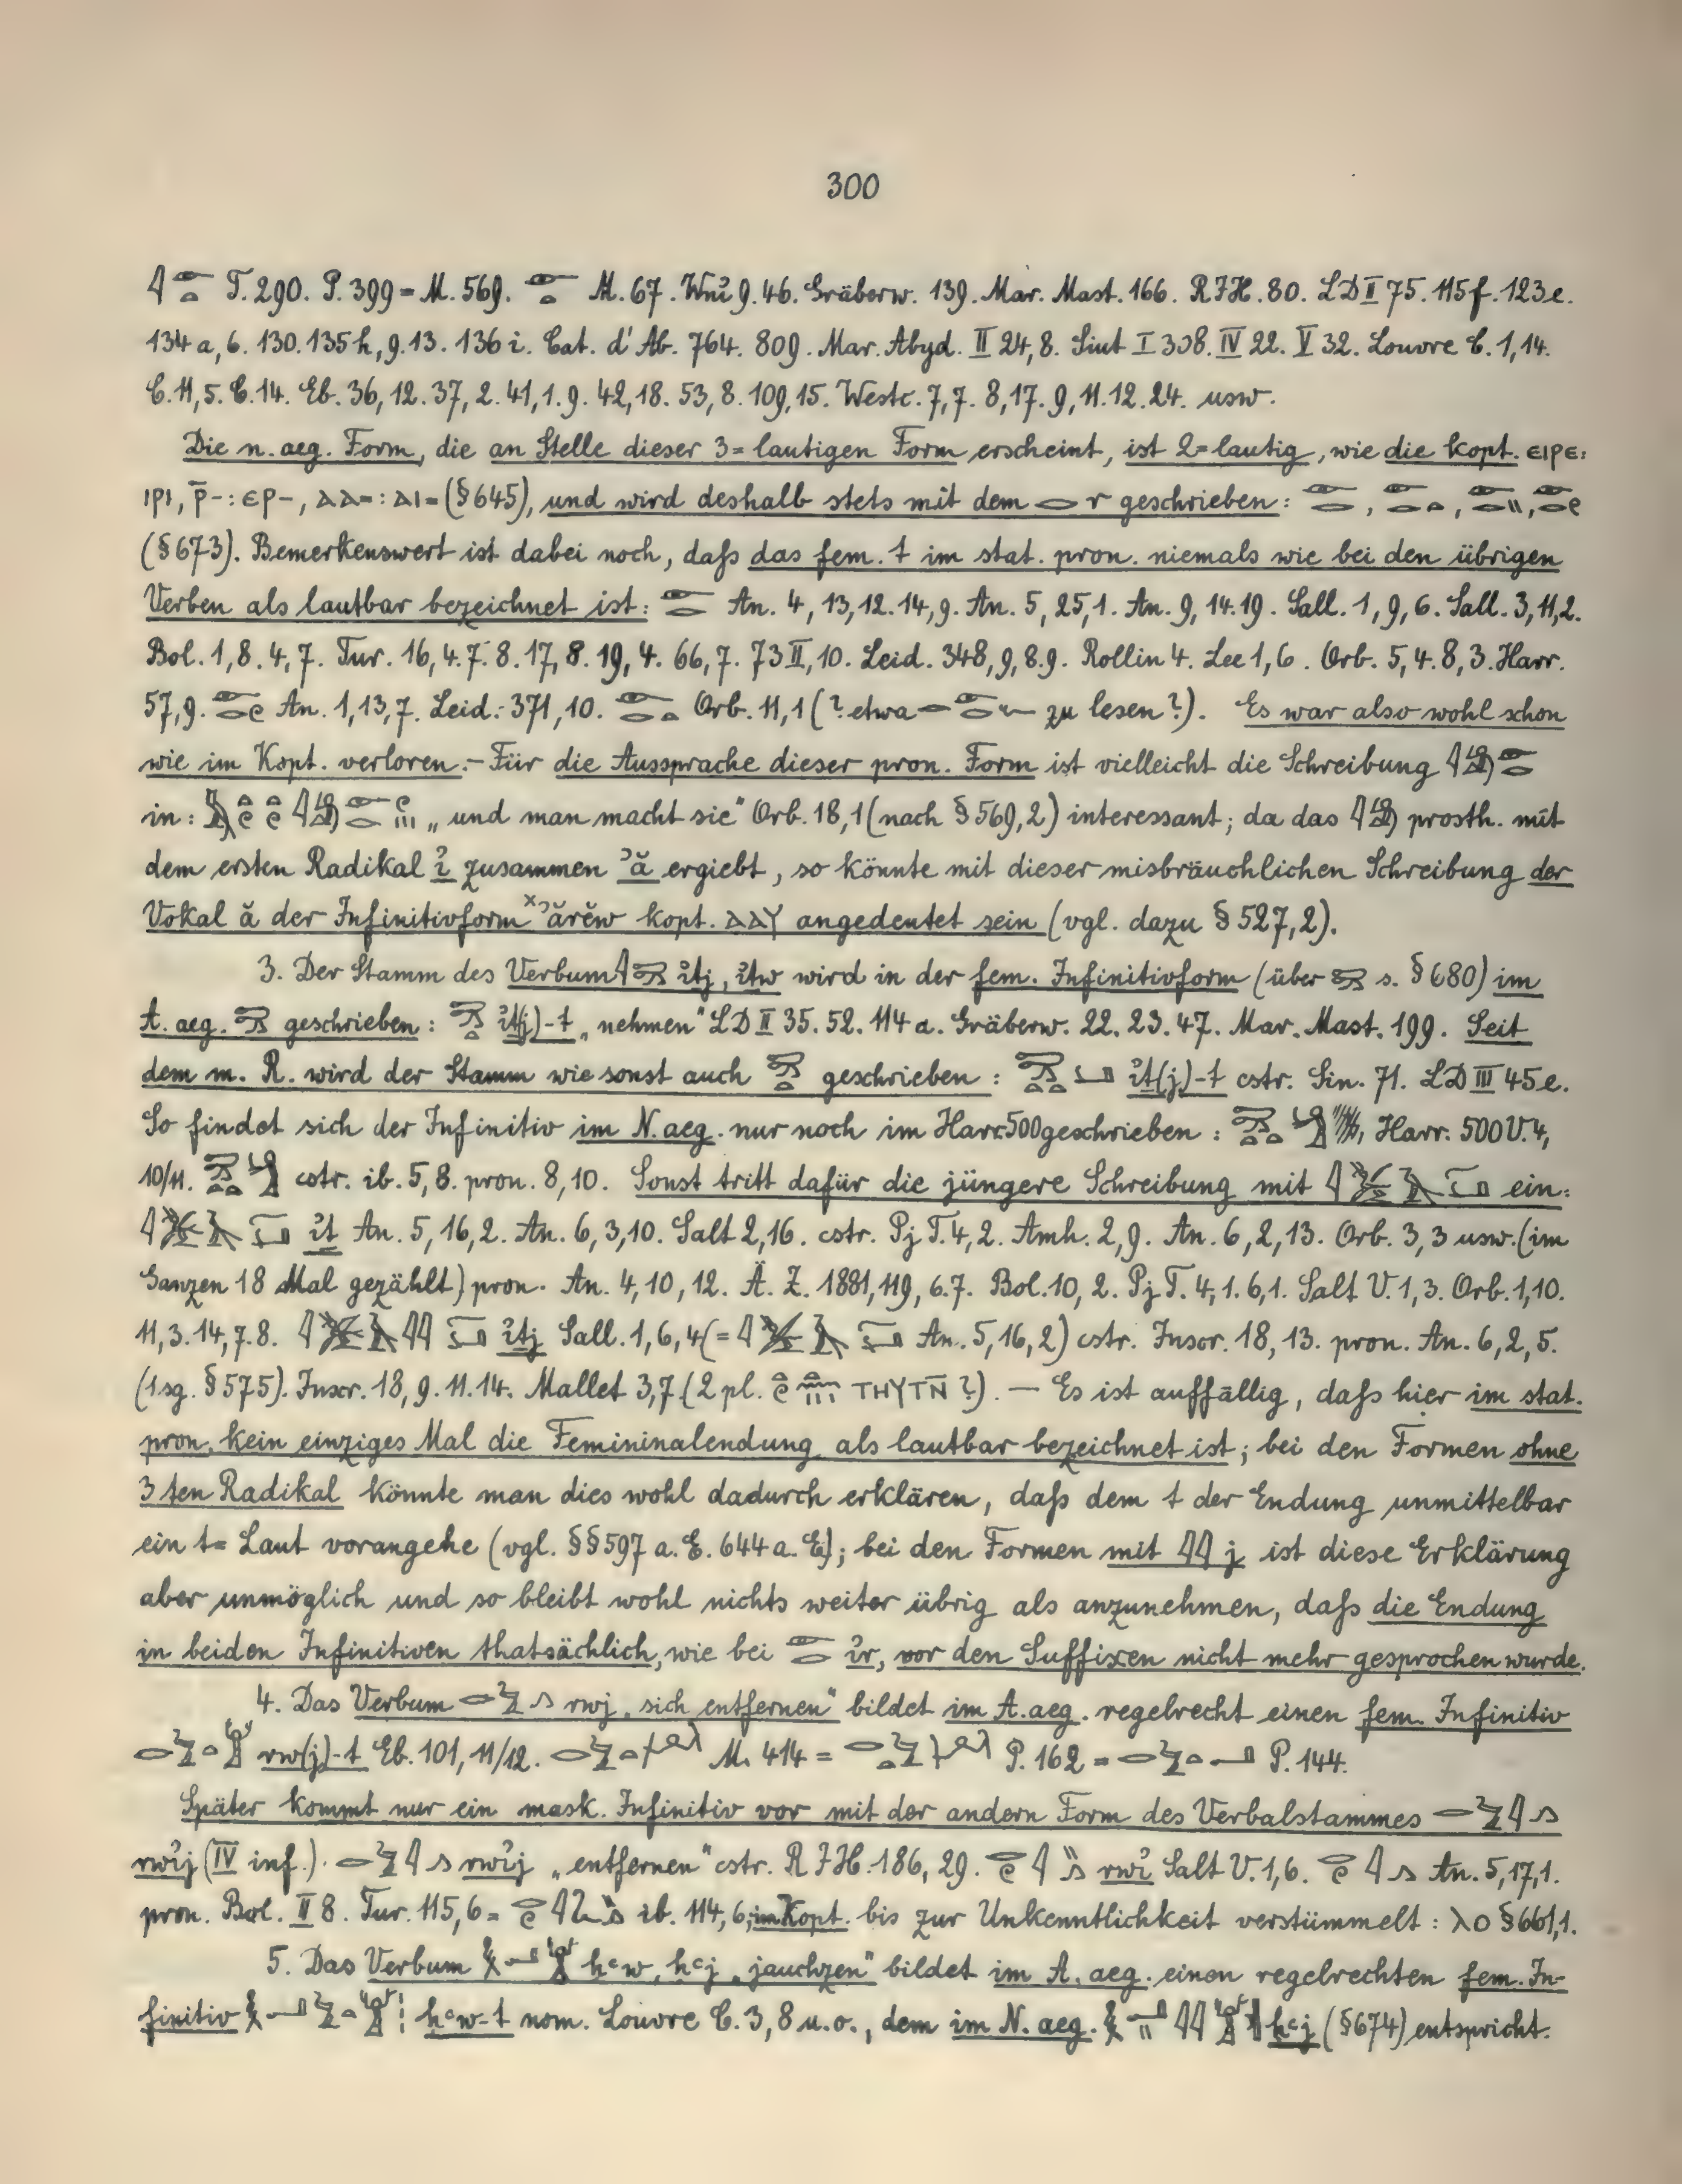 300
𓇋𓁹𓏏 T. 290. P. 399 = M. 569. 𓁹𓏏 M. 67. Wnỉ 9. 46. Gräberw. 139. Mar. Mast. 166. RJH. 80. LD II 75. 115 f. 123 e.
134 a, 6. 130. 135 h, 9. 13. 136 i. Cat. d'Ab. 764. 809. Mar. Abyd. II 24, 8. Siut I 308. IV 22. V 32. Louvre C. 1, 14.
C. 11, 5. C. 14. Eb. 36, 12. 37, 2. 41, 1. 9. 42, 18. 53, 8. 109, 15. Westc. 7, 7. 8, 17. 9, 11. 12. 24. usw.
Die n. aeg. Form, die an Stelle dieser 3=lautigen Form erscheint, ist 2=lautig, wie die kopt. ⲉⲓⲣⲉ:
ⲓⲣⲓ, ⲣ̄-: ⲉⲣ-, ⲁⲁ=: ⲁⲓ= (§ 645), und wird deshalb stets mit dem 𓂋 r geschrieben: 𓁹𓂋, 𓁹𓂋𓏏, 𓁹𓂋𓏭, 𓁹𓂋𓏲
(§ 673). Bemerkenswert ist dabei noch, daſs das fem. t im stat. pron. niemals wie bei den übrigen
Verben als lautbar bezeichnet ist: 𓁹𓂋 An. 4, 13, 12. 14, 9. An. 5, 25, 1. An. 9, 14. 19. Sall. 1, 9, 6. Sall. 3, 11, 2.
Bol. 1, 8. 4, 7. Tur. 16, 4. 7. 8. 17, 8. 19, 4. 66, 7. 73 II, 10. Leid. 348, 9, 8. 9. Rollin 4. Lee 1, 6. Orb. 5, 4. 8, 3. Harr.
57, 9. 𓁹𓂋𓏲 An. 1, 13, 7. Leid. 371, 10. 𓁹𓂋𓏏 Orb. 11, 1 (? etwa 𓂋𓁹𓂋𓆑 zu lesen?). Es war also wohl schon
wie im Kopt. verloren. – Für die Aussprache dieser pron. Form ist vielleicht die Schreibung 𓇋𓁹𓂋
in: „und man macht sie" Orb. 18, 1 (nach § 569, 2) interessant; da das 𓇋 prosth. mit
dem ersten Radikal ỉ zusammen ʾă ergiebt, so könnte mit dieser misbräuchlichen Schreibung der
Vokal ă der Infinitivform ˣʾărĕw kopt. ⲁⲁⲩ angedeutet sein (vgl. dazu § 527, 2).
3. Der Stamm des Verbum ỉṯj, ỉṯw wird in der fem. Infinitivform (über s. § 680) im
A. aeg. geschrieben: ỉṯ(j)-t „nehmen" LD II 35. 52. 114 a. Gräberw. 22. 23. 47. Mar. Mast. 199. Seit
dem m. R. wird der Stamm wie sonst auch geschrieben: ỉt(j)-t cstr. Sin. 71. LD III 45 e.
So findet sich der Infinitiv im N. aeg. nur noch im Harr. 500 geschrieben: Harr. 500 V. 4,
10/11. cstr. ib. 5, 8. pron. 8, 10. Sonst tritt dafür die jüngere Schreibung mit ein:
ỉṯ An. 5, 16, 2. An. 6, 3, 10. Salt 2, 16. cstr. Pj T. 4, 2. Amh. 2, 9. An. 6, 2, 13. Orb. 3, 3 usw. (im
Ganzen 18 Mal gezählt) pron. An. 4, 10, 12. Ä. Z. 1881, 119, 6. 7. Bol. 10, 2. Pj T. 4, 1. 6, 1. Salt V. 1, 3. Orb. 1, 10.
11, 3. 14, 7. 8. ỉṯj Sall. 1, 6, 4 (= An. 5, 16, 2) cstr. Inscr. 18, 13. pron. An. 6, 2, 5.
(1 sg. § 575). Inscr. 18, 9. 11. 14. Mallet 3, 7 (2 pl. ⲧⲏⲩⲧⲛ̄ ?). — Es ist auffällig, daſs hier im stat.
pron. kein einziges Mal die Femininalendung als lautbar bezeichnet ist; bei den Formen ohne
3ten Radikal könnte man dies wohl dadurch erklären, daſs dem t der Endung unmittelbar
ein t= Laut vorangehe (vgl. §§ 597 a. E. 644 a. E.); bei den Formen mit 𓇋𓇋 j ist diese Erklärung
aber unmöglich und so bleibt wohl nichts weiter übrig als anzunehmen, daſs die Endung
in beiden Infinitiven thatsächlich, wie bei 𓁹𓂋 ỉr, vor den Suffixen nicht mehr gesprochen wurde.
4. Das Verbum 𓂋𓅱𓂻 rwj „sich entfernen" bildet im A. aeg. regelrecht einen fem. Infinitiv
rw(j)-t Eb. 101, 11/12. M. 414 = P. 162 = P. 144.
Später kommt nur ein mask. Infinitiv vor mit der andern Form des Verbalstammes 𓂋𓅱𓇋𓂻
rwỉj (IV inf.). 𓂋𓅱𓇋𓂻 rwỉj „entfernen" cstr. RJH. 186, 29. rwỉ Salt V. 1, 6. An. 5, 17, 1.
pron. Bol. II 8. Tur. 115, 6 = ib. 114, 6; im Kopt. bis zur Unkenntlichkeit verstümmelt: ⲗⲟ § 661, 1.
5. Das Verbum ḥꜥw, ḥꜥj „jauchzen" bildet im A. aeg. einen regelrechten fem. In-
finitiv ḥꜥw-t nom. Louvre C. 3, 8 u. o., dem im N. aeg. ḥꜥj (§ 674) entspricht.